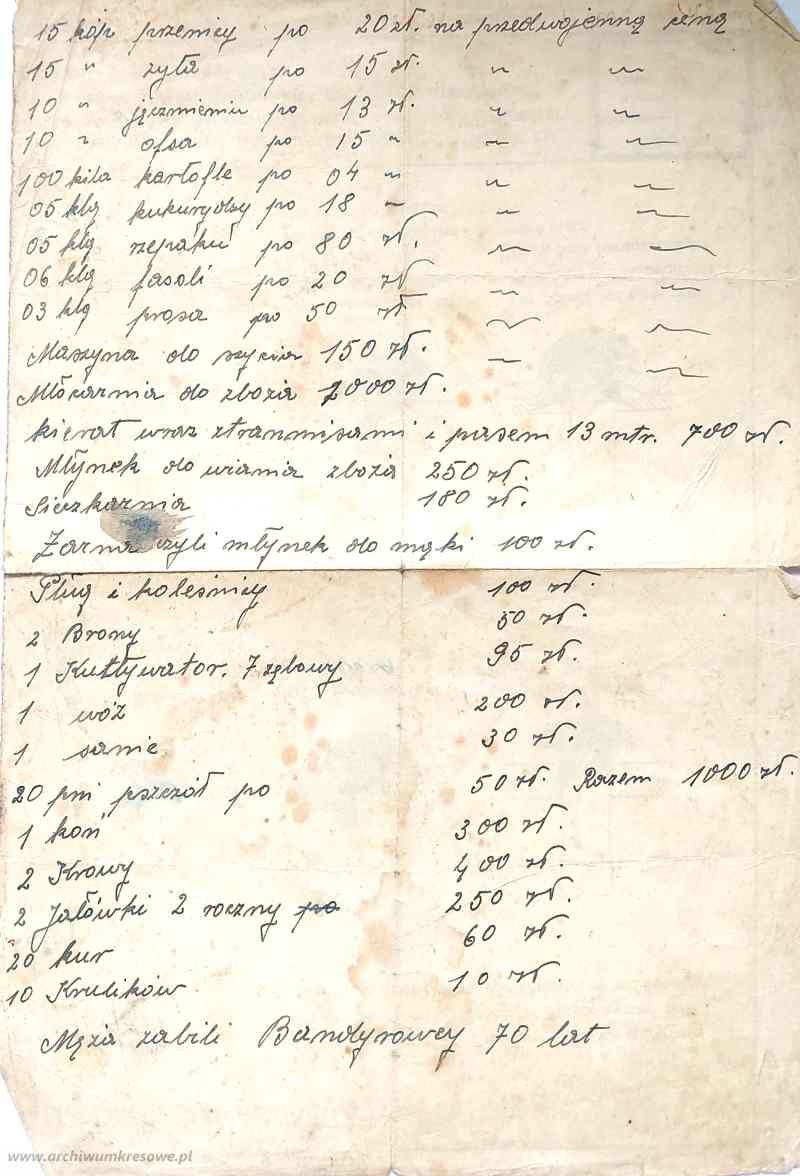 15 kóp pszenicy po 20 zł. na przedwojenną cenę
15 " żyta po 15 zł. " "
10 " jęczmieniu po 13 zł. " "
10 " ofsa po 15 " " "
100 kila kartofle po 04 " " "
05 klg kukurydzy po 18 " " "
05 klg rzepaku po 80 zł. " "
06 klg fasoli po 20 zł " "
03 klg prosa po 50 zł " "
Maszyna do szycia 150 zł. " "
Młócarnia do zboża 1000 zł.
kierat wraz ztranmisami i pasem 13 mtr. 700 zł.
Młynek do wiania zboża 250 zł.
Sieczkarnia 180 zł.
Żarna czyli młynek do mąki 100 zł.
Pług i koleśnicy 100 zł.
2 Brony 50 zł.
1 Kultywator. 7 zębowy 95 zł.
1 wóz 200 zł.
1 sanie 30 zł.
20 pni pszczół po 50 zł. Razem 1000 zł.
1 koń 300 zł.
2 Krowy 400 zł.
2 Jałówki 2 roczny po 250 zł.
20 kur 60 zł.
10 Krulików 10 zł.
Męża zabili Bandyrowcy 70 lat
www.archiwumkresowe.pl